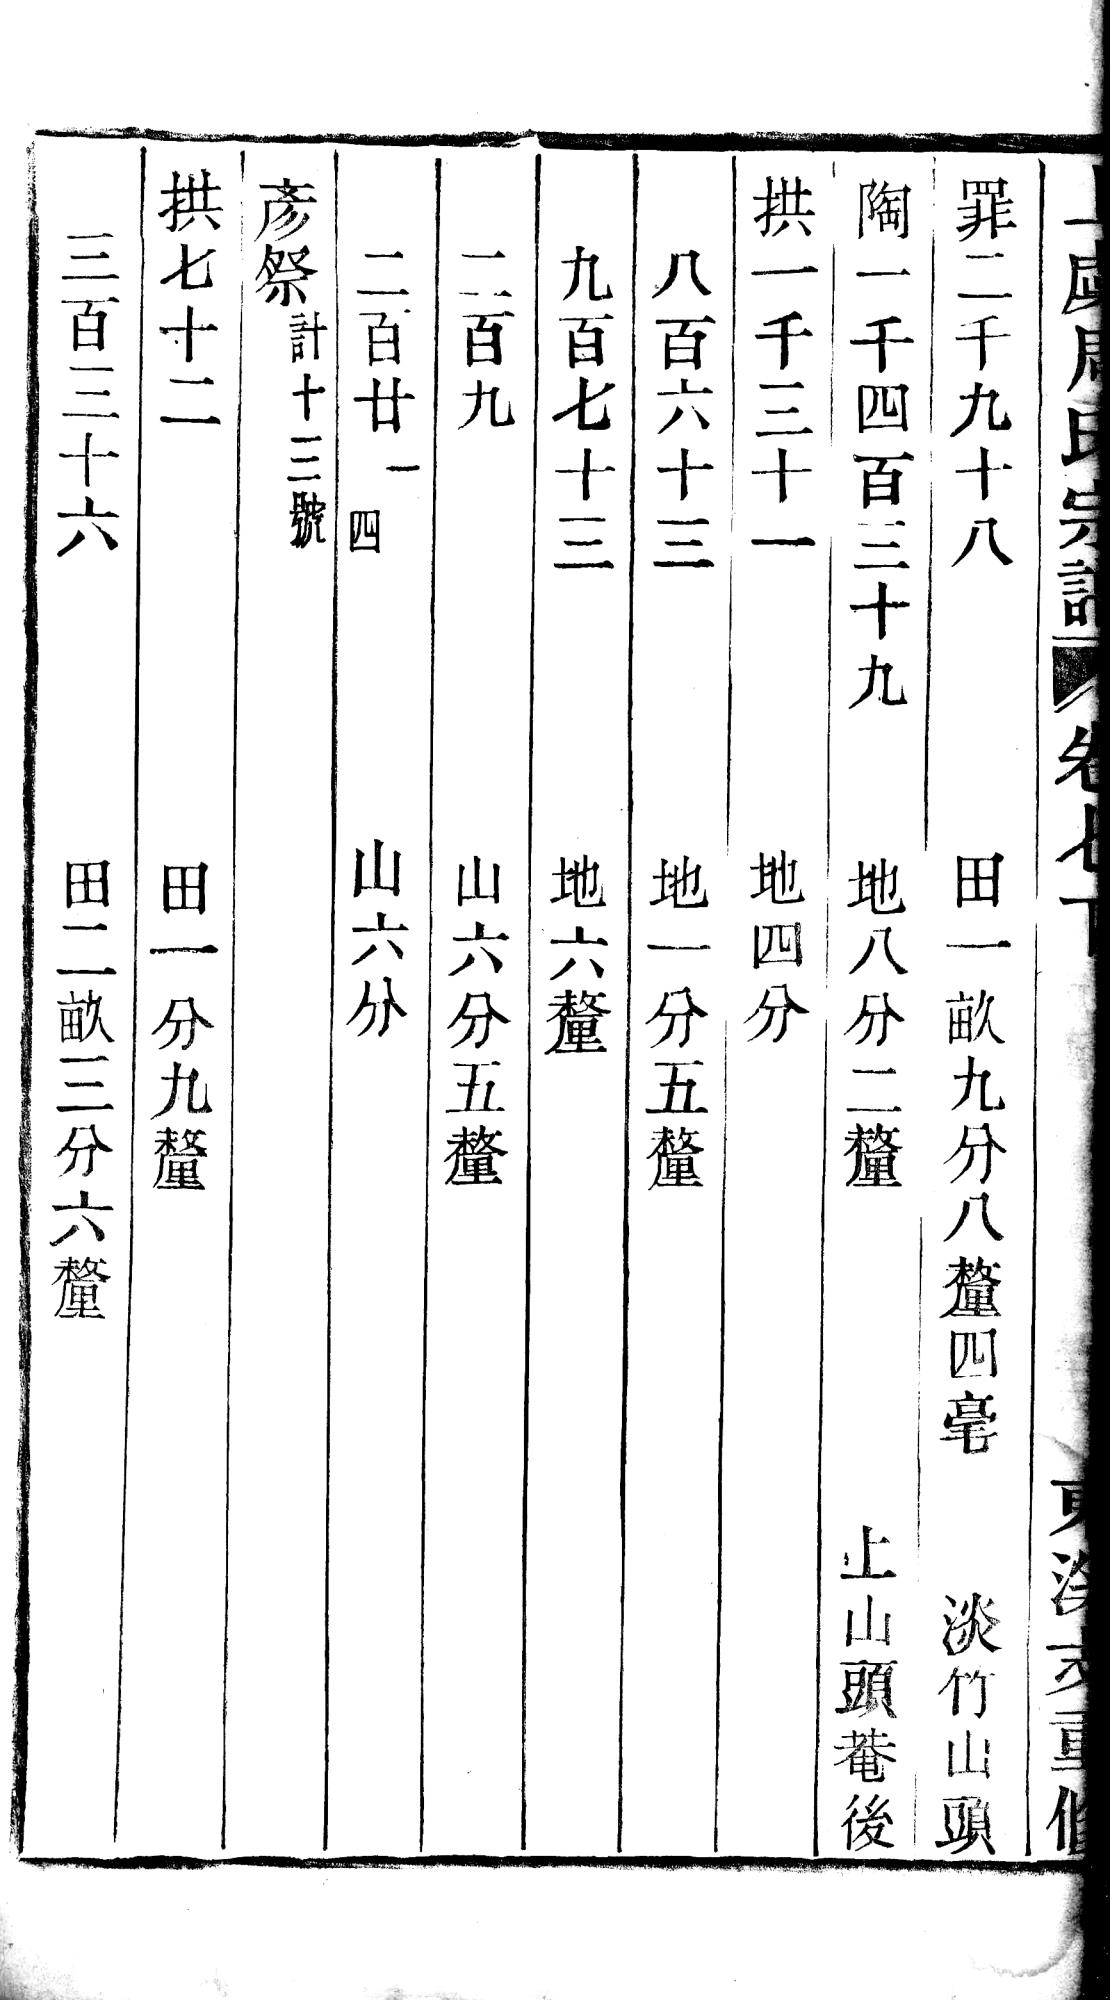 周氏宗譜 卷七下
罪二千九十八 田一畝九分八釐四毫 淡竹山頭
陶一千四百三十九 地八分二釐 上山頭菴後
拱一千三十一 地四分
八百六十三 地一分五釐
九百七十三 地六釐
二百九 山六分五釐
二百廿一 四 山六分
彥祭計十三號
拱七十二 田一分九釐
三百三十六 田二畝三分六釐